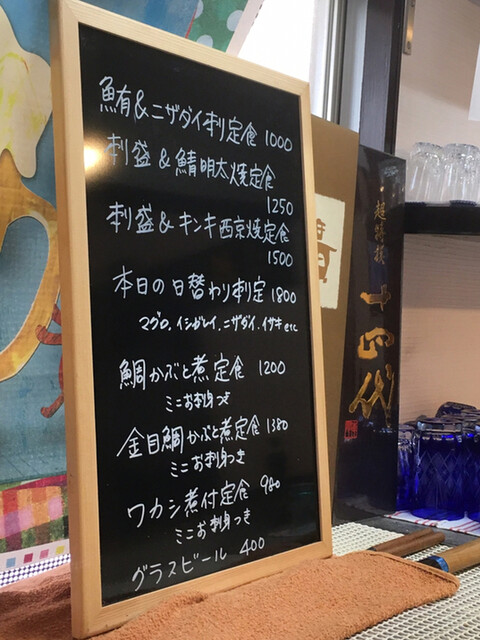 鮪&ニザダイ刺定食 1000
刺盛&鯖明太焼定食
1250
刺盛&キンキ西京焼定食
1500
本日の日替わり刺定 1800
マグロ、イシガレイ、ニザダイ、イサキ etc
鯛かぶと煮定食 1200
ミニお刺身つき
金目鯛かぶと煮定食 1380
ミニお刺身つき
ワカシ煮付定食 980
ミニお刺身つき
グラスビール 400
超特撰
十四代